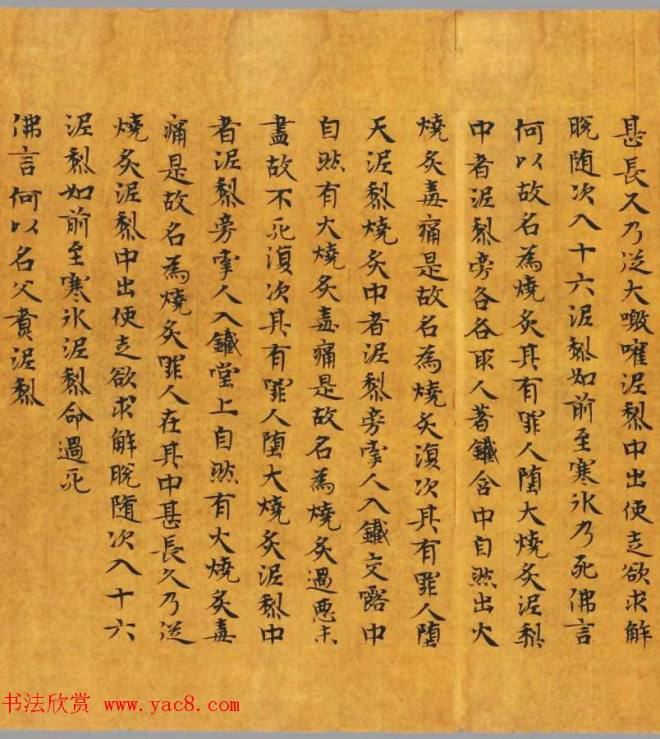 甚長久乃從大噭嚾泥犁中出便走欲求解
脫隨次入十六泥犁如前至寒氷乃死佛言
何以故名為燒炙其有罪人墮大燒炙泥犁
中者泥犁旁各各取人著鐵舍中自然出火
燒炙毒痛是故名為燒炙復次其有罪人墮
天泥犁燒炙中者泥犁旁掌人入鐵交露中
自然有大燒炙毒痛是故名為燒炙過惡未
盡故不死復次其有罪人墮大燒炙泥犁中
者泥犁旁掌人入鐵堂上自然有火燒炙毒
痛是故名為燒炙罪人在其中甚長久乃從
燒炙泥犁中出便走欲求解脫隨次入十六
泥犁如前至寒氷泥犁命過死
佛言何以名父賣泥犁
书法欣赏 www.yac8.com